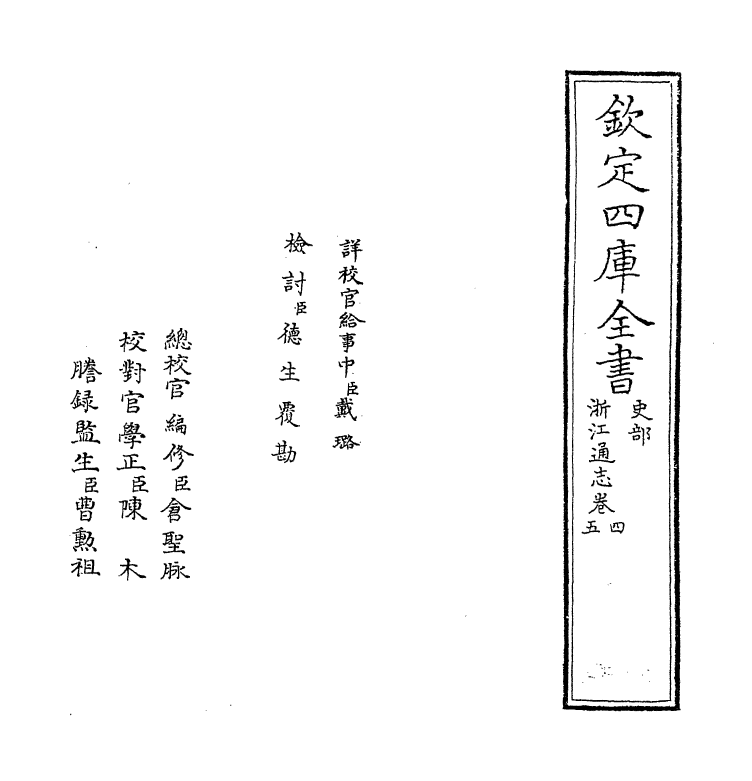 欽定四庫全書
史部
浙江通志卷四
五
詳校官給事中臣戴璐
檢討臣德生覆勘
總校官編修臣倉聖脉
校對官學正臣陳木
謄録監生臣曹勲祖